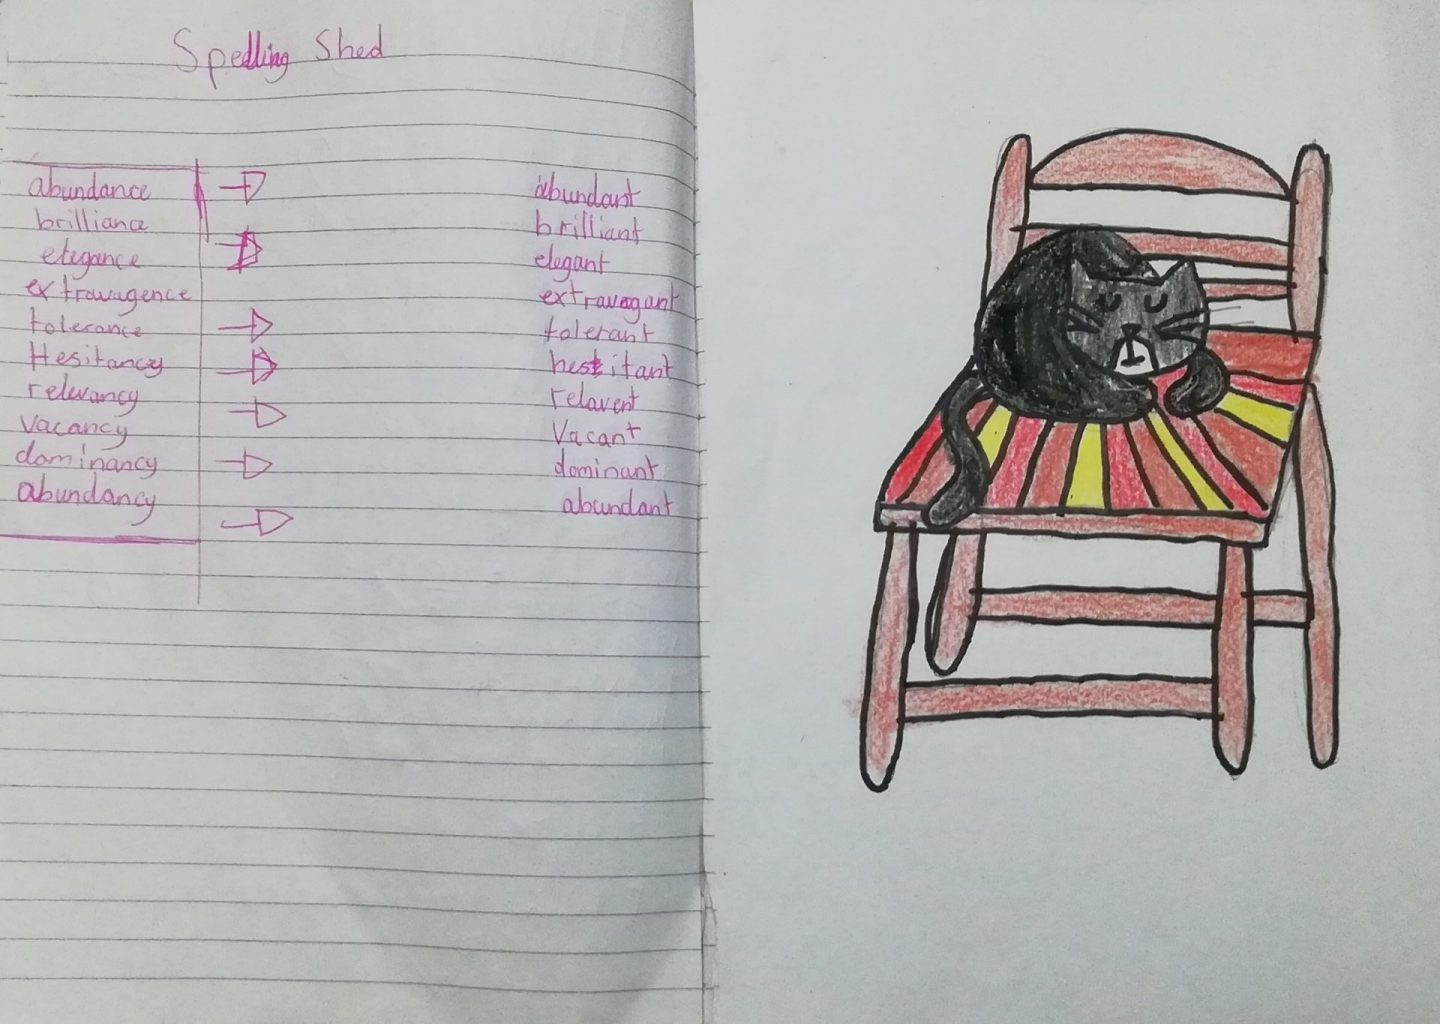 Spelling Shed
abundance abundant
brilliance brilliant
elegance elegant
extravagence extravagant
tolerance tolerant
Hesitancy hesitant
relevancy relavent
Vacancy Vacant
dominancy dominant
abundancy abundant